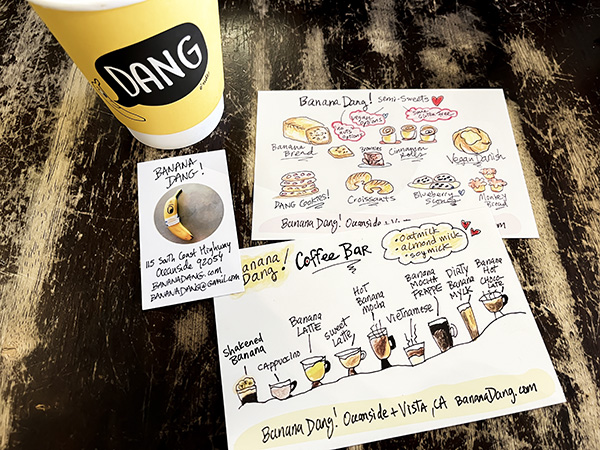 DANG
BANANA
DANG!
115 South Coast Highway
Oceanside 92054
BANANADANG.com
BANANADANG@gmail.com
Banana Dang! semi-sweets
vegan options
Banana
Bread
Brownies
Cinnamon
Rolls
Vegan Danish
DANG Cookies!
Croissants
Blueberry
Scones
Monkey
Bread
Banana Dang! Oceanside +
Banana
Dang!
Coffee Bar
• oatmilk
• almond milk
• soy milk
Shakened
Banana
Cappuccino
Banana
LATTE
sweet
Latte
Hot
Banana
mocha
Vietnamese
Banana
Mocha
FRAPPE
Dirty
Banana
MYLK
Banana
Hot
Choco-
LATE
Banana Dang! Oceanside + Vista, CA BananaDang.com